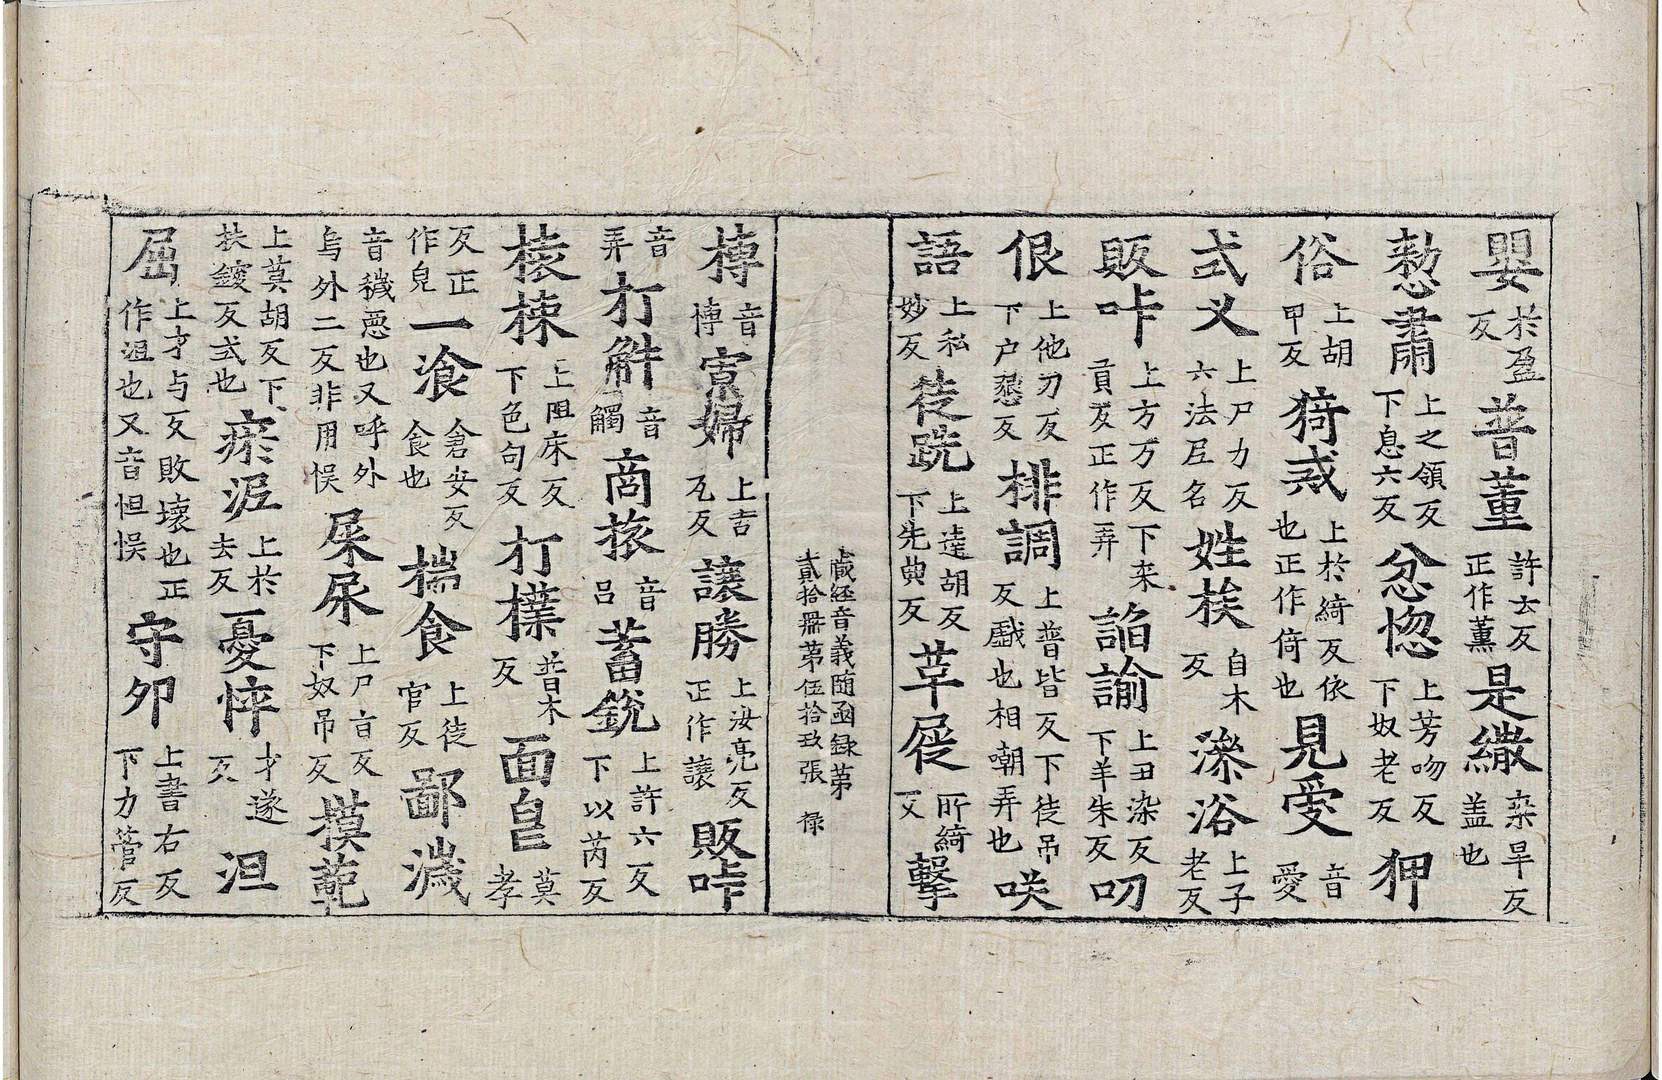 嬰於盈反普董許云反正作薰是繖桒旱反盖也
憗肅上之領反下息六反忿惚上芳吻反下奴老反狎
俗上胡甲反猗戒上於綺反依也正作倚也見愛音愛
式义上尸力反六法居名姓挨自木反澡浴上子老反
販咔上方万反下来貢反正作弄諂諭上丑染反下羊朱反叨
佷上他刃反下户懇反排調上普皆反下徒吊反戲也相嘲弄也咲
語上私妙反徒跣上達胡反下先典反草屣所綺反擊
藏経音義随函録第
貳拾冊第伍拾玖張
榑音博寡婦上吉瓦反讓勝上汝亮反正作讓販哢
音弄打觧音觸商旅音吕蓄銳上許六反下以芮反
榱棟上阻床反下色句反打檏普木反面皃莫孝
反正作皃一飡倉安反食也揣食上徒官反鄙濊
音穢悪也又呼外烏外二反非用悮屎尿上尸旨反下奴吊反模範
上莫胡反下扶鑁反式也瘀泥上於去反憂悴才遂反沮
屈上才与反敗壞也正作沮也又音怚悮守夘上書右反下力管反